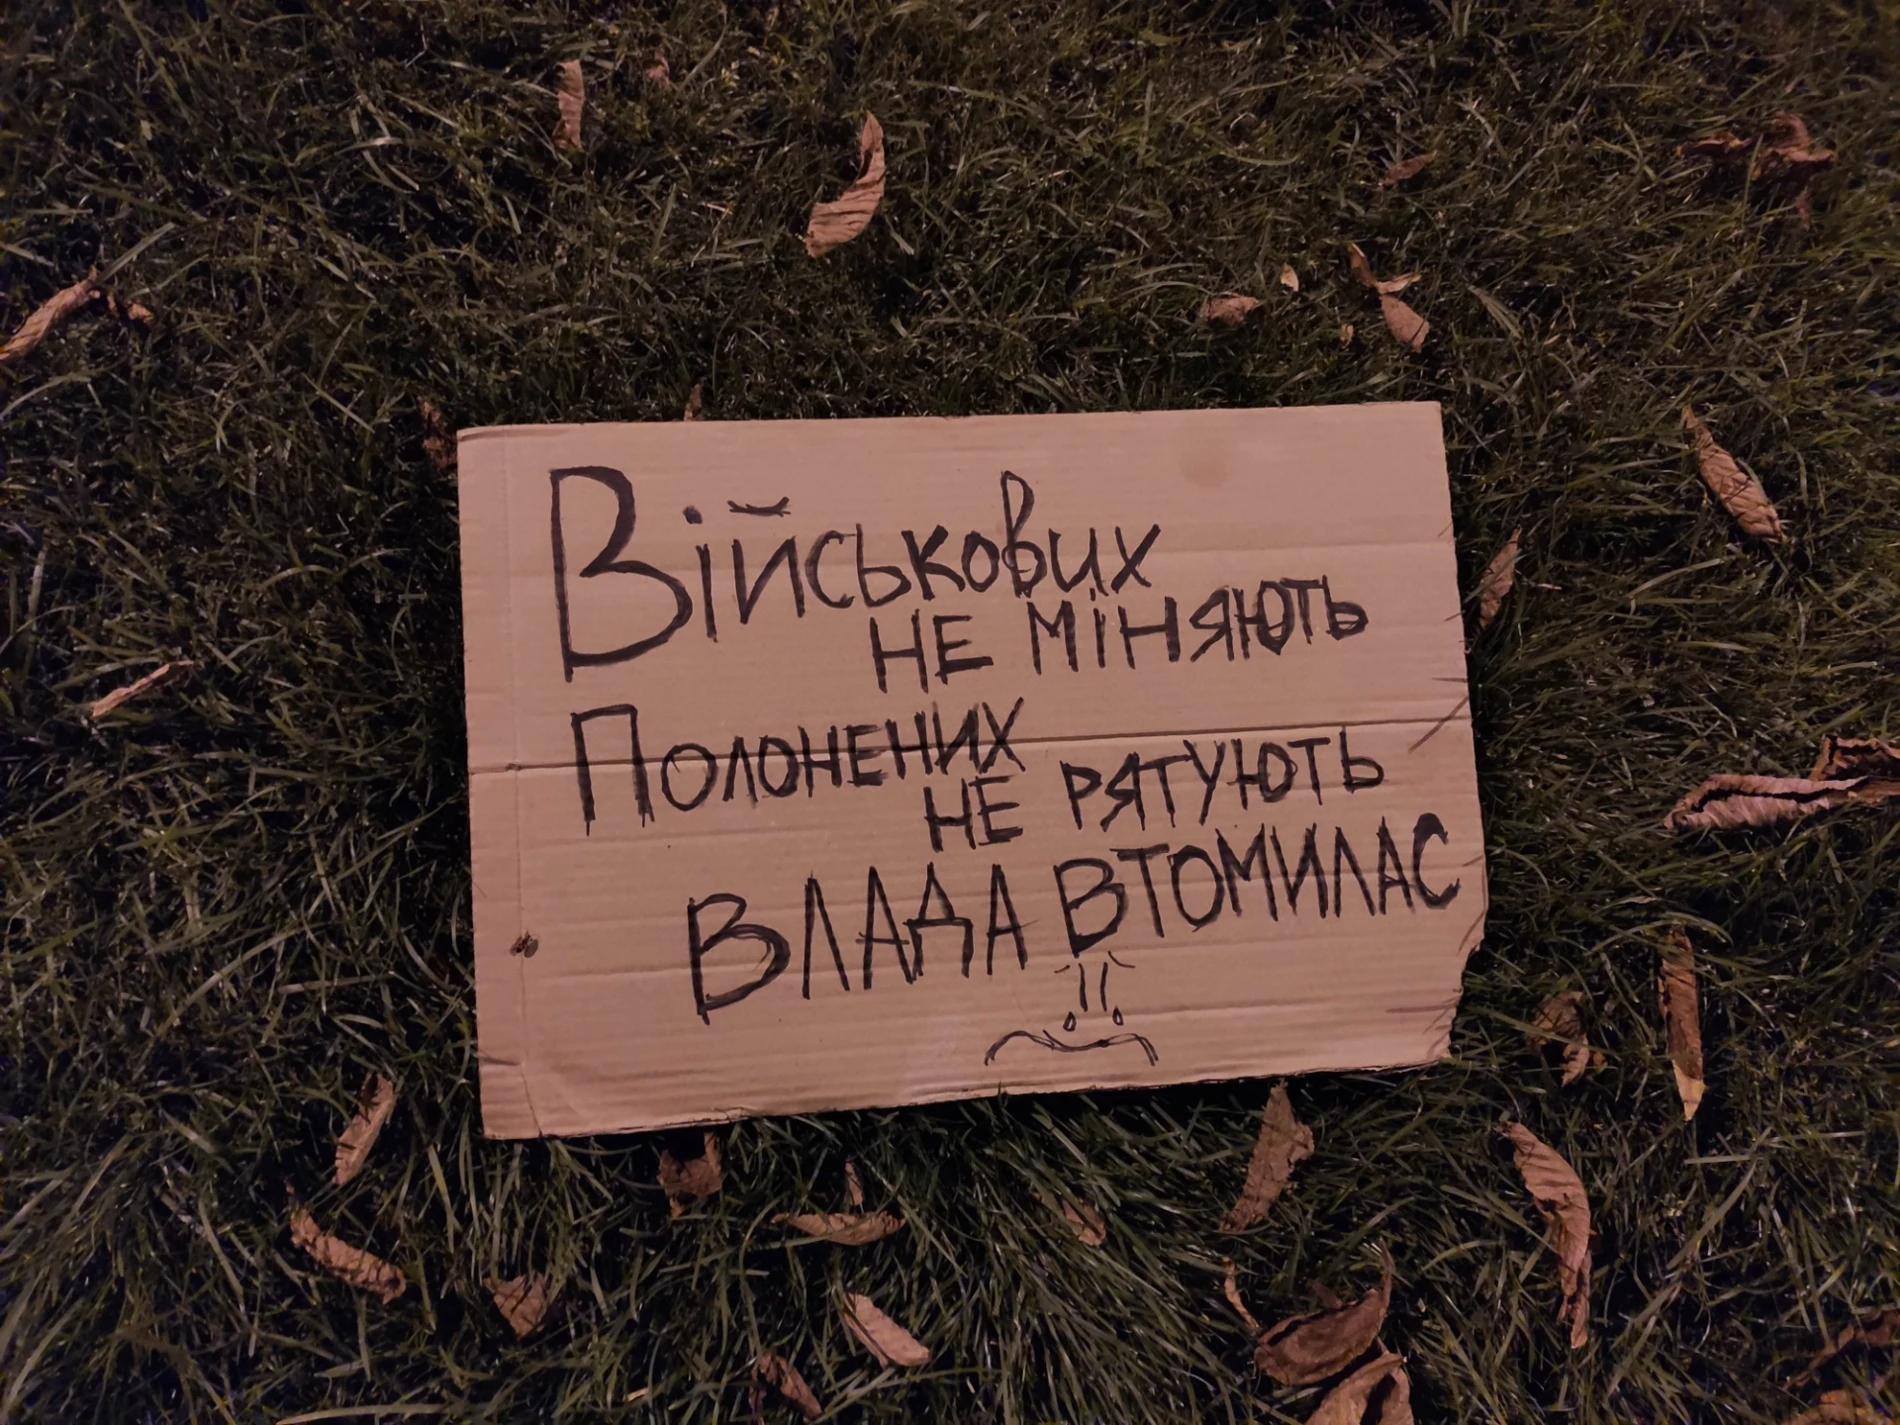 Військових
не міняють
Полонених
не рятують
Влада втомилас